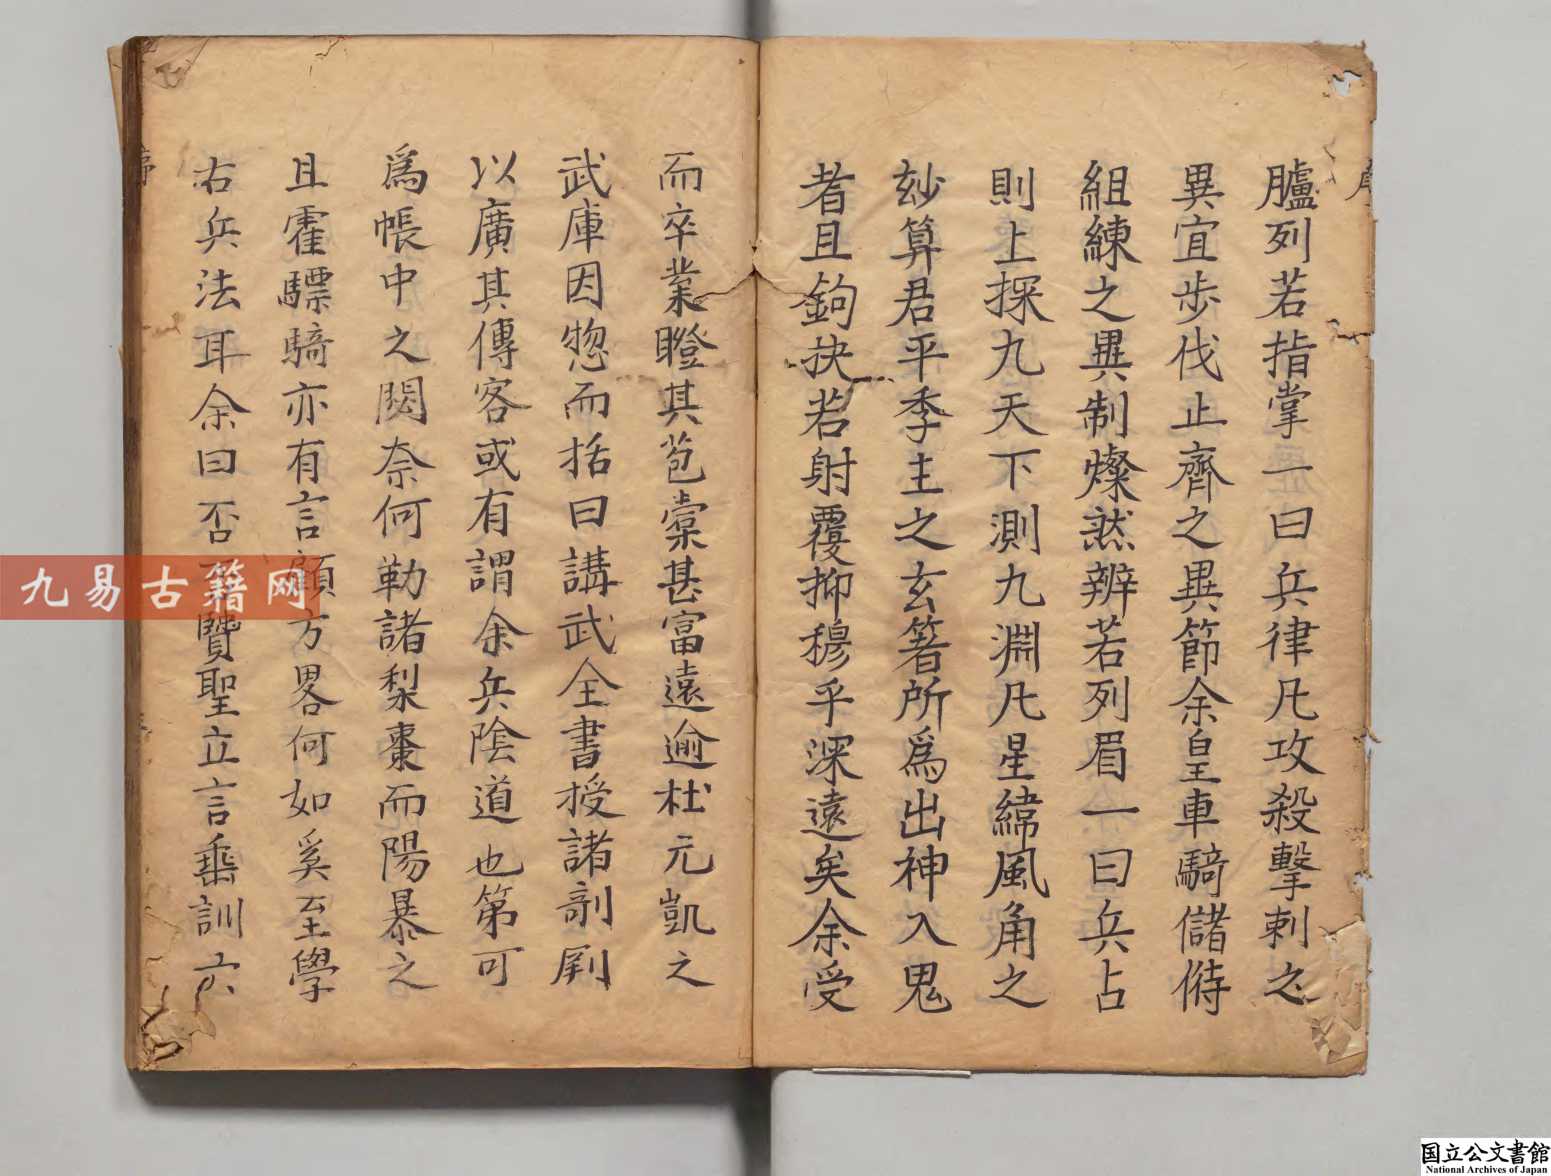 臚列若指掌一曰兵律凡攻殺擊刺之
異宜步伐止齊之異節余皇車騎儲偫
組練之異制燦然辨若列眉一曰兵占
則上探九天下測九淵凡星緯風角之
玅算君平季主之玄箸所爲出神入鬼
者且鉤抉若射覆抑穆乎深遠矣余受
而卒業瞪其苞橐甚富遠逾杜元凱之
武庫因惣而括曰講武全書授諸剞劂
以廣其傳客或有謂余兵陰道也第可
爲帳中之閟奈何勒諸梨棗而陽暴之
且霍驃騎亦有言顧方畧何如奚至學
右兵法耳余曰否覽聖立言垂訓六
序
九易古籍网
国立公文書館
National Archives of Japan